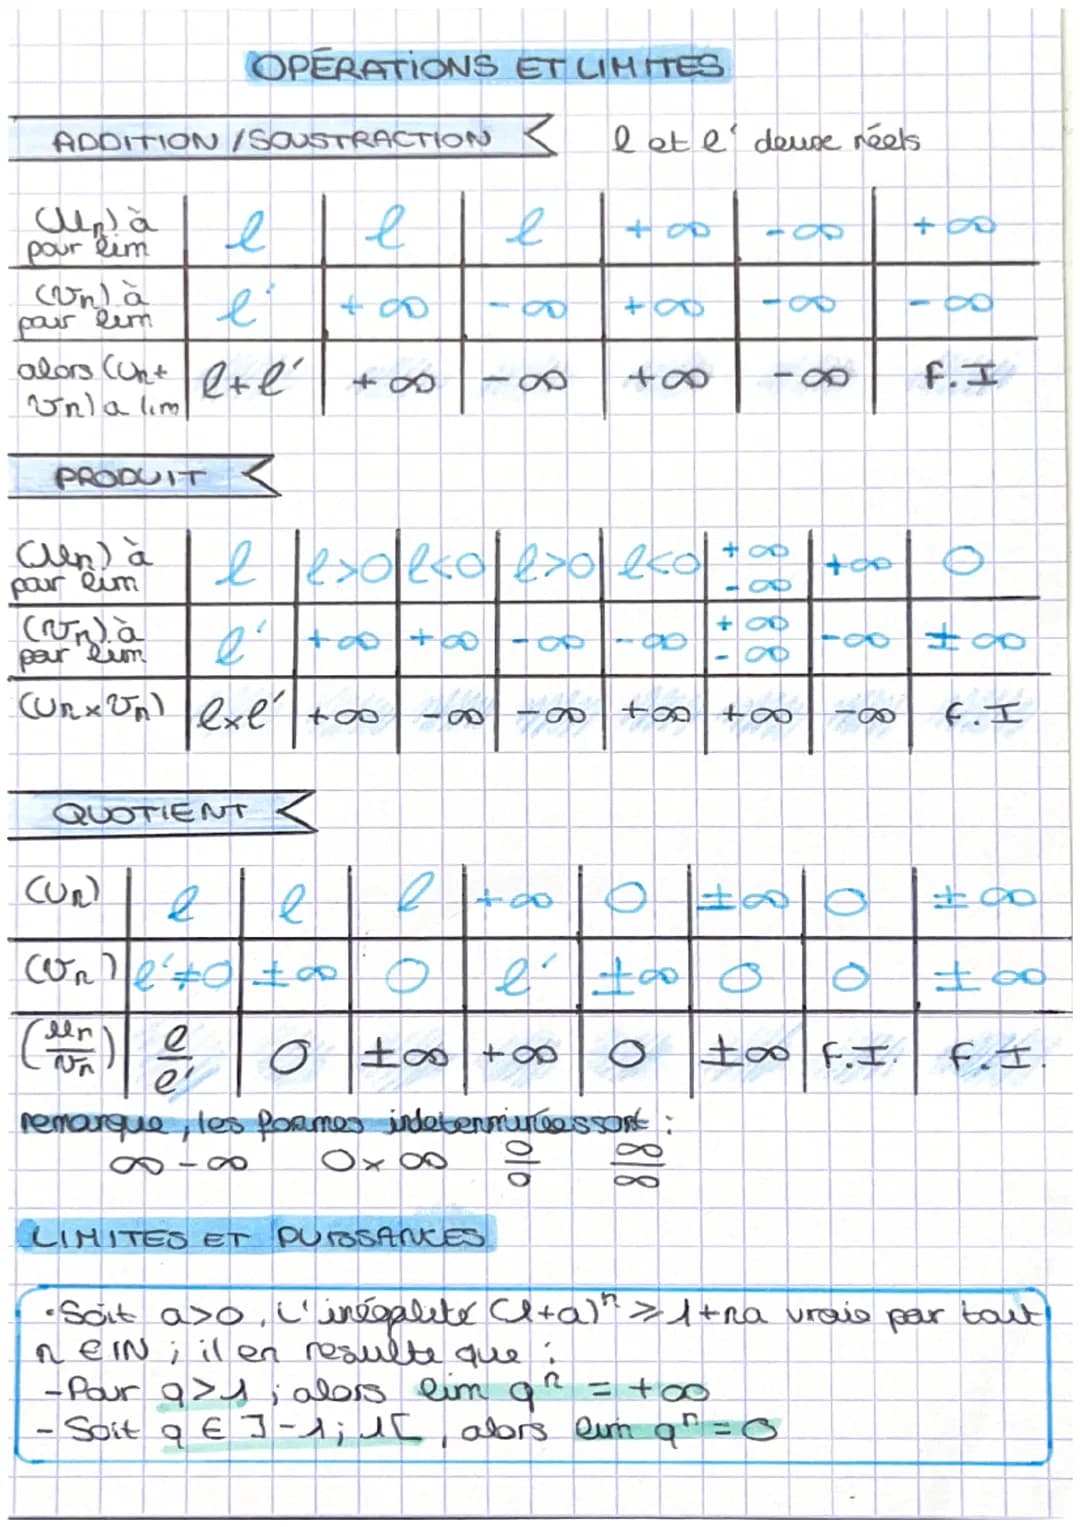 OPÉRATIONS ET LIMITES
ADDITION / SOUSTRACTION l et l' deux réels
(Un) à pour lim l l l +∞ -∞ +∞
(Vn) à pour lim l' +∞ -∞ +∞ -∞ -∞
alors (Un+ Vn) a lim l+l' +∞ -∞ +∞ -∞ F.I
PRODUIT
(Un) à pour lim l l>0 l<0 l>0 l<0 +∞ -∞ +∞ 0
(Vn) à pour lim l' +∞ +∞ -∞ -∞ +∞ -∞ -∞ ±∞
(Un×Vn) l×l' +∞ -∞ -∞ +∞ +∞ -∞ F.I
QUOTIENT
(Un) l l l +∞ 0 ±∞ 0 ±∞
(Vn) l'≠0 ±∞ 0 l' ±∞ 0 0 ±∞
(Un/Vn) l/l' 0 ±∞ +∞ 0 ±∞ F.I. F.I.
remarque, les formes indeterminées sont :
∞ - ∞ 0 × ∞ 0/0 ∞/∞
LIMITES ET PUISSANCES
• Soit a>0, L'inégalité (1+a)ⁿ ≥ 1+na vraie par tout
n ∈ IN ; il en resulte que :
- Pour q>1 ; alors lim qⁿ = +∞
- Soit q ∈ ]-1; 1[, alors lim qⁿ = 0